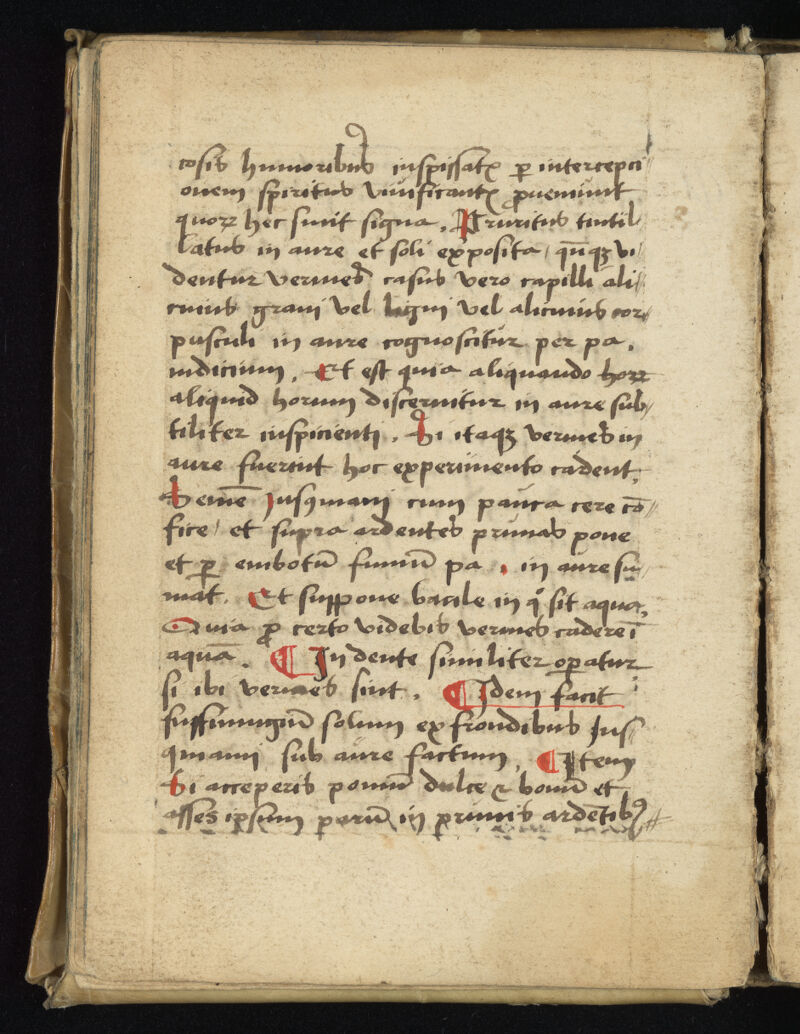 cosis humoribus inspissatꝭ ꝑ intercepci
onem spiritus viuificantꝭ ꝓueniunt
quorꝝ hec sunt signa. Pruritus tintil
latus in aure et soli exposita / qn̄qꝫ vi
dentur vermes casus vero capilli ali
cuius grani vel ligni vel alicuius cor
pusculi in aure cognoscitur per pa.
indicium. Et est quia aliquando horꝝ
aliquid horum discernitur in aure sub
tiliter inspicienti. Si itaqꝫ vermes in
aure fuerint hoc experimento cadent.
Semē Jusqmani cum pauca cere cō
fice / et supra ardentes prunas pone
et ꝑ embotū fumū pa . in aure su
mat. Et suppone bacile in qͦ sit aqua.
Quia ꝓ certo videbis vermes cadere ī
aquā. ¶ In dente similiter oꝑatur
si ibi vermes sint. ¶ Idem facit
suffumigiū solum ex frondibus Jus
qmani sub aure factum. ¶ Item
Si acceperis pomū dulce & bonū et
asses ipsum parū in prunis ardētibꝰ